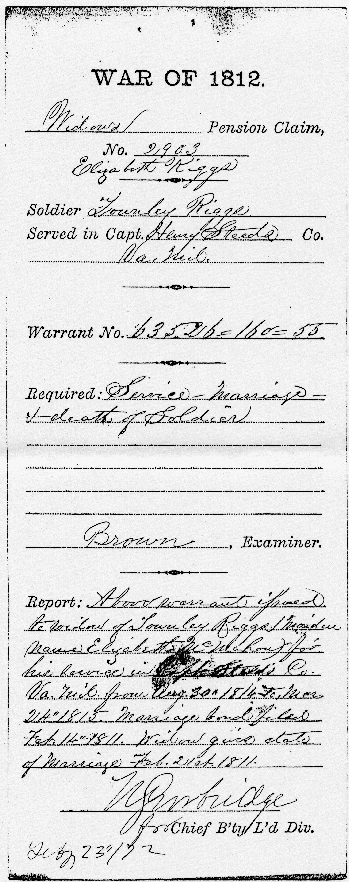 WAR OF 1812.
Widow's Pension Claim,
No. 2903
Elizabeth Riggs
Soldier Townley Riggs
Served in Capt. Henry Steeds Co.
Va. Mil.
Warrant No. 63526=160=55
Required: Service - Marriage -
& death of Soldier
Brown, Examiner.
Report: Above warrant issued
to widow of Townley Riggs (Maiden
name Elizabeth) for
his service in Capt. Steeds Co.
Va. Mil from Aug 30th 1814 to Mar
1815- Marriage bond filed
Feb. 14th 1811. Widow give date
of Marriage Feb. 21st 1811.
for Chief B'ty L'd Div.